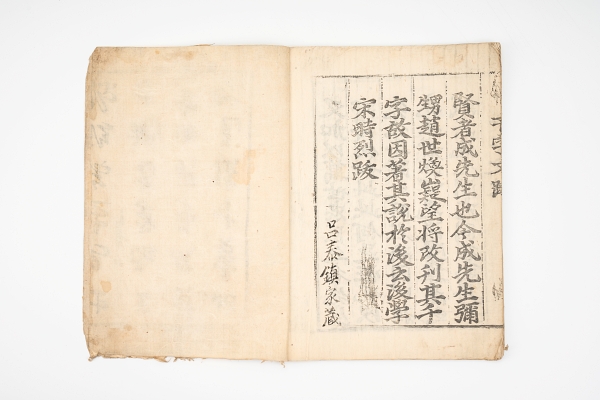 千字文跋
賢者成先生也今成先生彌
甥趙世煥嶷望將改刊其千
字故因著其說於後云後學
宋時烈跋
呂泰鎭家藏